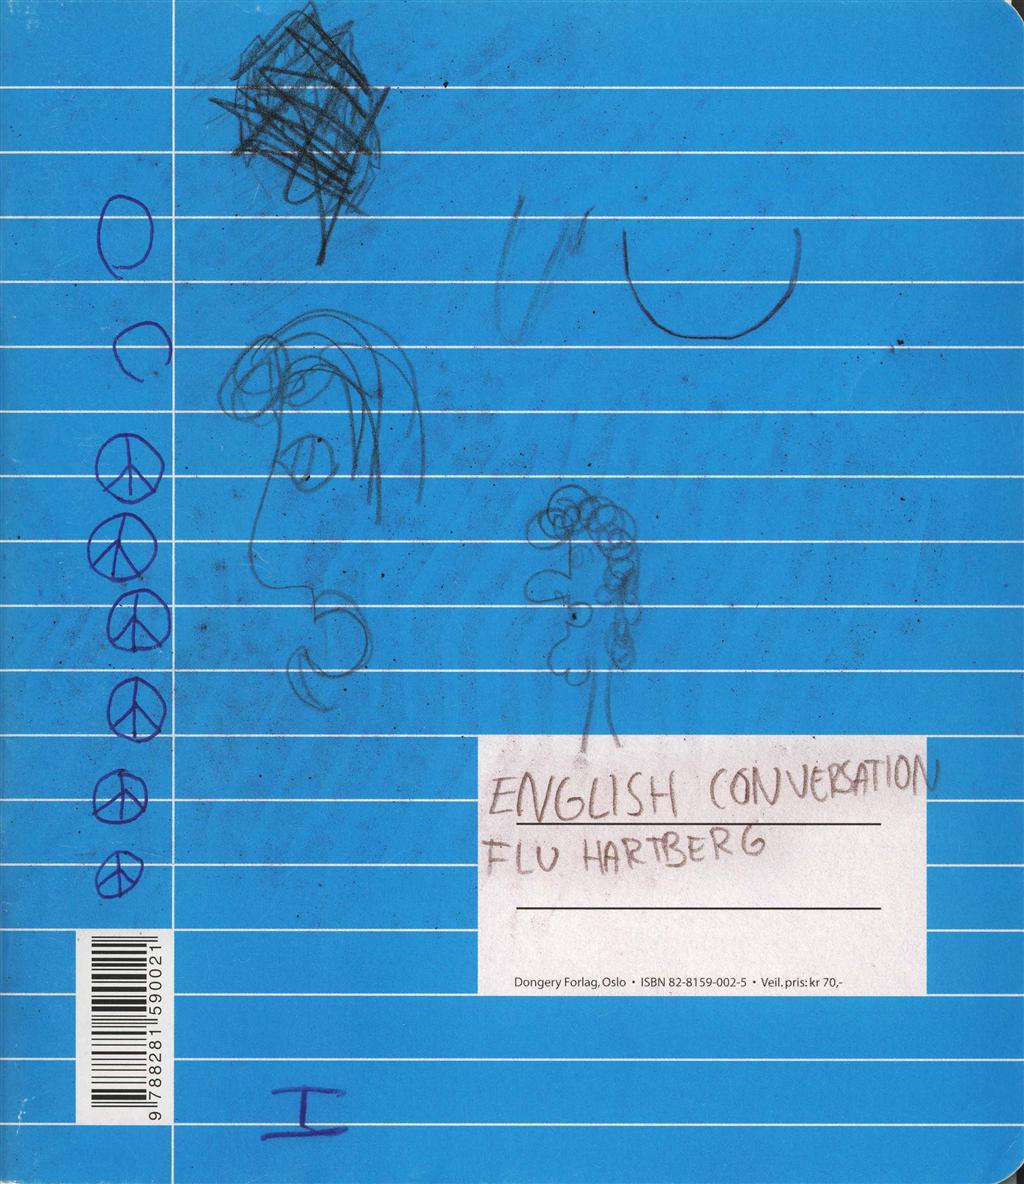 ENGLISH CONVERSATION
FLU HARTBERG
Dongery Forlag, Oslo • ISBN 82-8159-002-5 • Veil. pris: kr 70,-
9 788281 590021
I